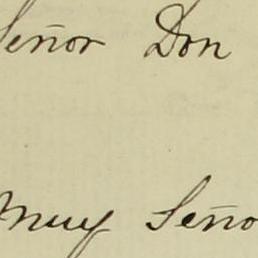 Señor Don
Muy Seño